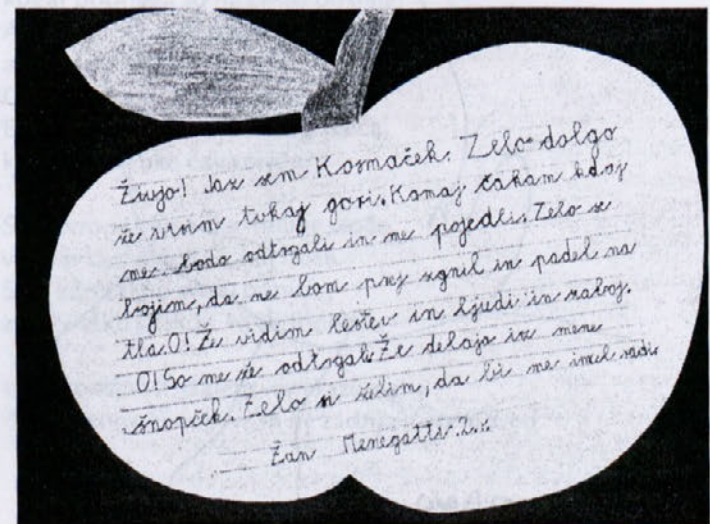 Živjo! Jaz sem Kosmaček. Zelo dolgo
že visim tukaj gori. Komaj čakam kdaj
me bodo odtrgali in me pojedli. Zelo se
bojim, da ne bom prej zgnil in padel na
tla. O! Že vidim lestev in ljudi in zaboj.
O! So me že odtrgali. Že delajo iz mene
šnopček. Zelo si želim, da bi me imeli radi.
Žan Menegatti 2.